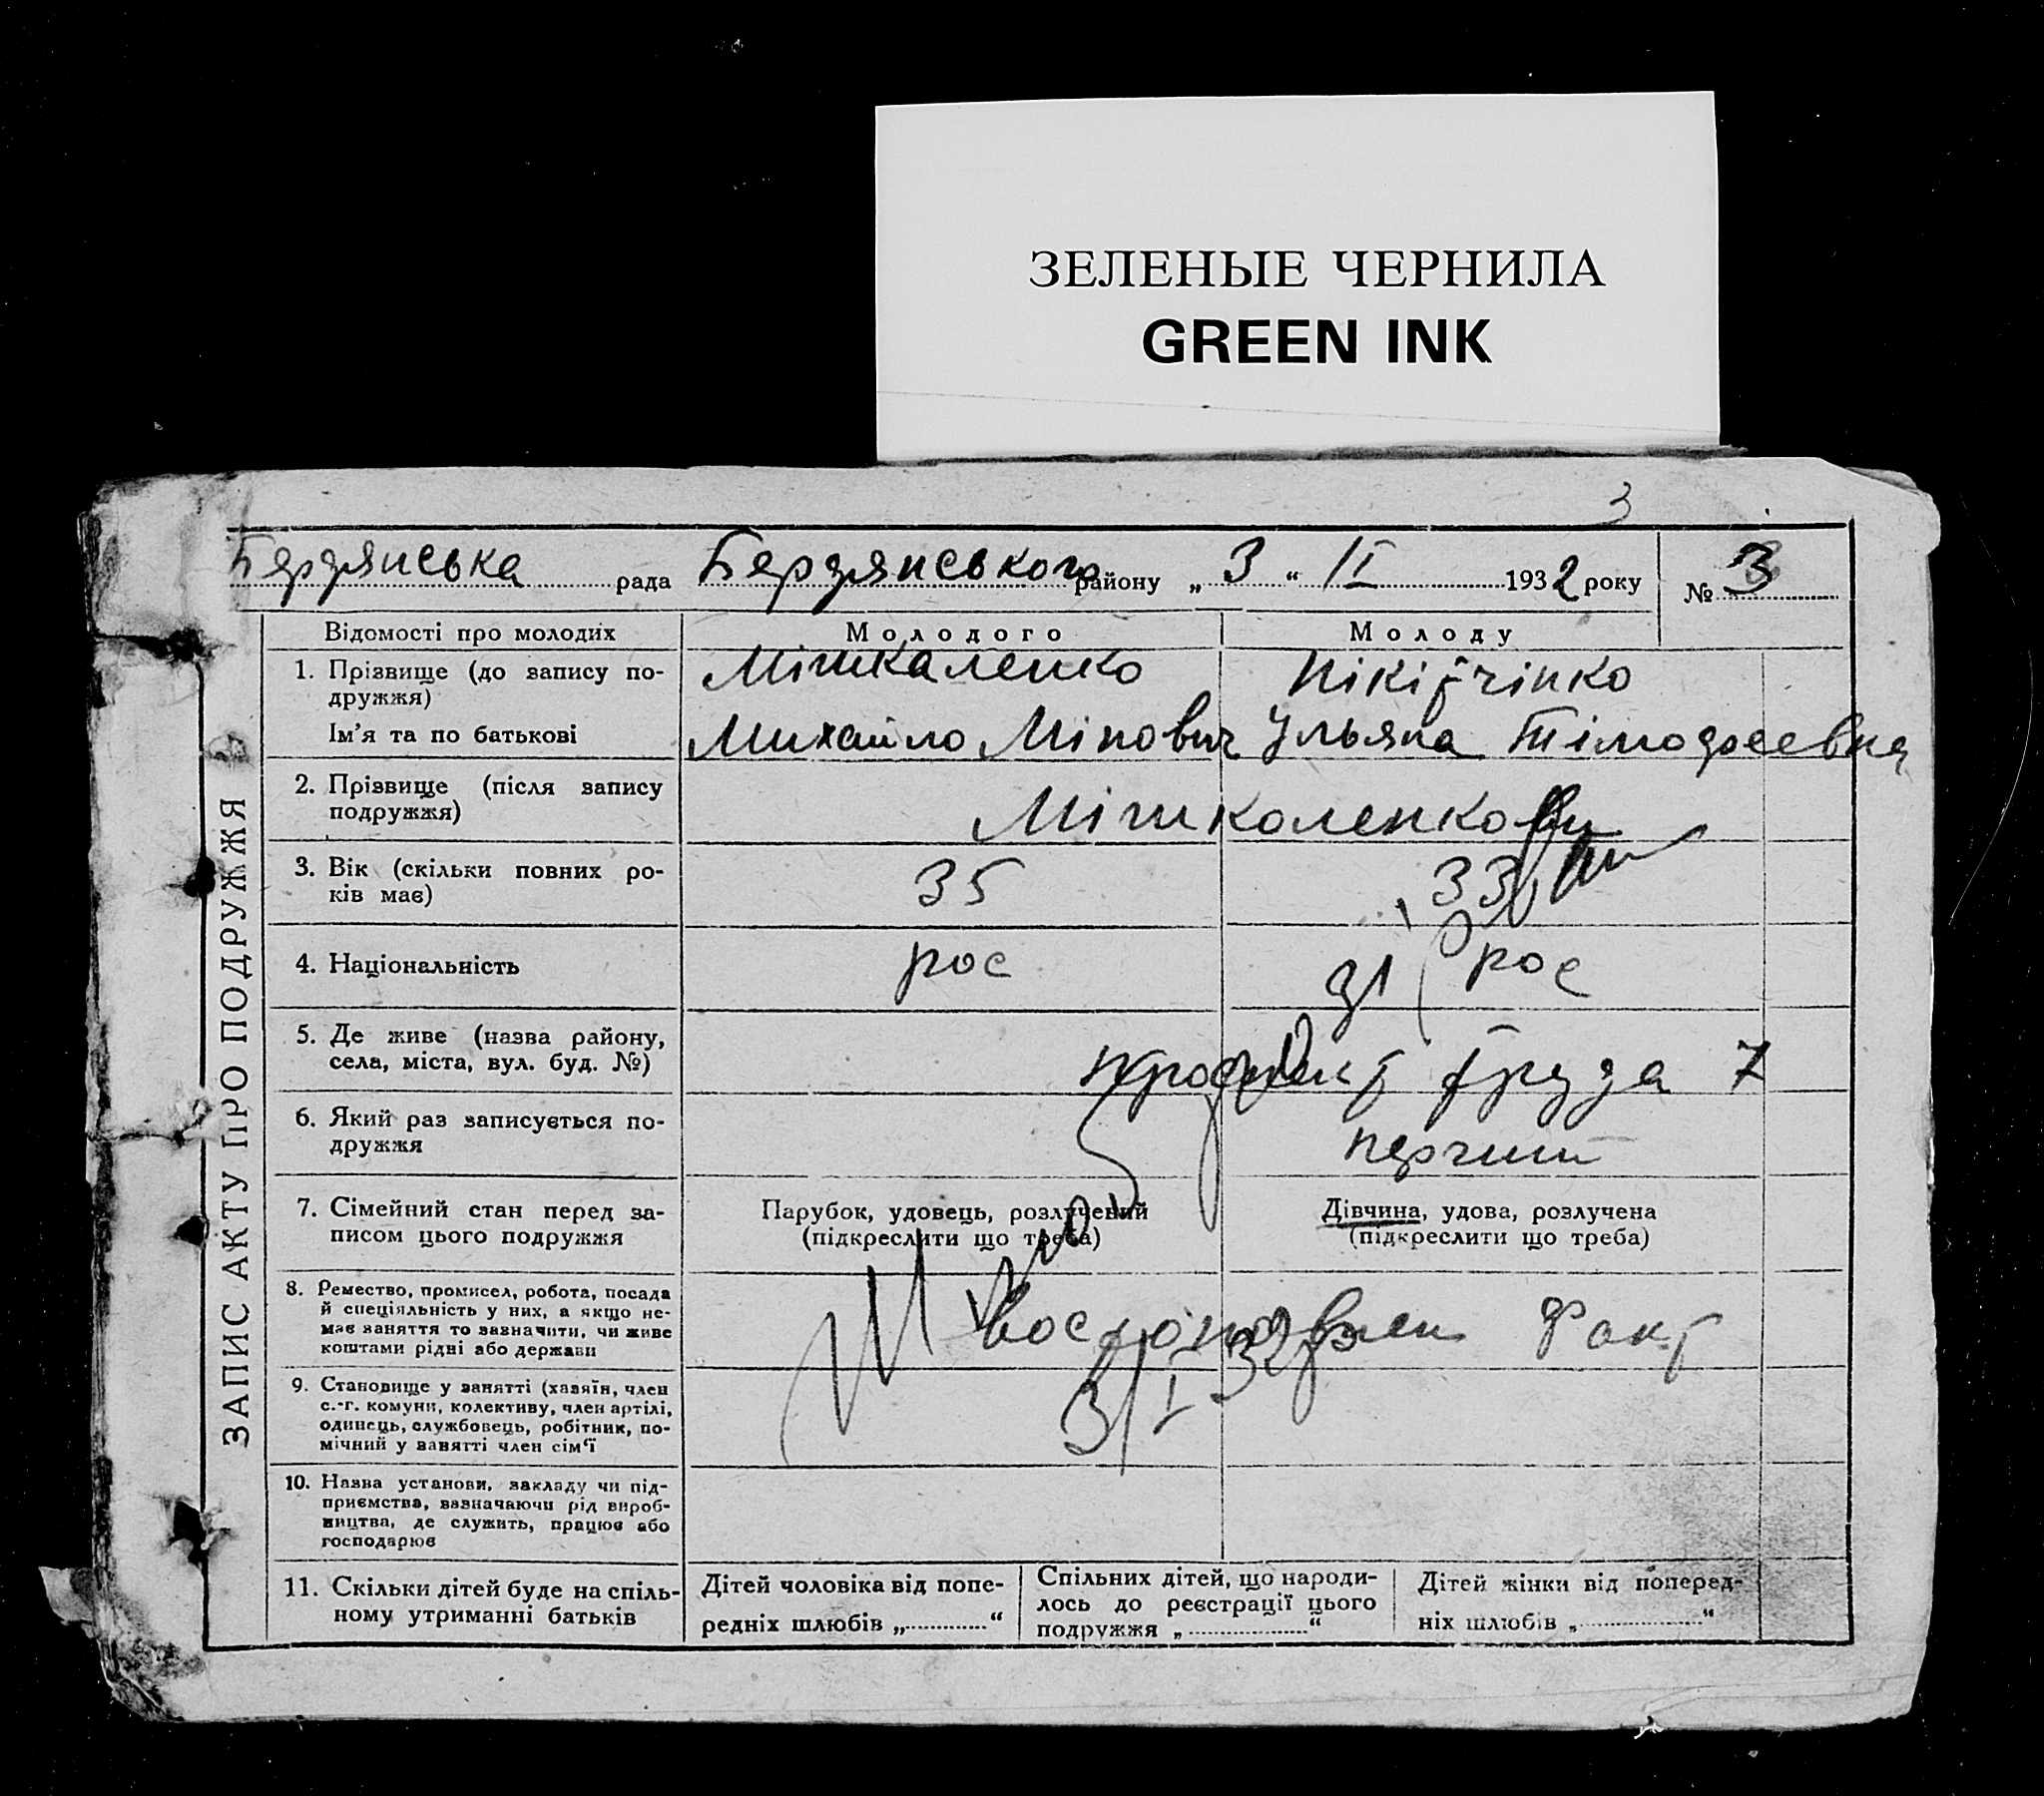 ЗЕЛЕНЫЕ ЧЕРНИЛА
GREEN INK
3
Бердянська рада Бердянського району „ 3 “ II 1932 року № 3
ЗАПИС АКТУ ПРО ПОДРУЖЖЯ
Відомості про молодих Молодого Молоду
1. Прізвище (до запису по-
дружжя)
Мішкаленко
Ім'я та по батькові
Михайло Мінович Ульяна Тімофеевна
2. Прізвище (після запису
подружжя)
Мішколенкови
3. Вік (скільки повних ро-
ків має)
35 33
4. Національність
рос рос
5. Де живе (назва району,
села, міста, вул. буд. №)
7
6. Який раз записується по-
дружжя
7. Сімейний стан перед за-
писом цього подружжя
Парубок, удовець, розлучений
(підкреслити що треба)
Дівчина, удова, розлучена
(підкреслити що треба)
8. Ремество, промисел, робота, посада
й спеціяльність у них, а якщо не-
має заняття то зазначити, чи живе
коштами рідні або держави
3/I 32
9. Становище у занятті (хазяїн, член
с.-г. комуни, колективу, член артілі,
одинець, службовець, робітник, по-
мічний у занятті член сім'ї
10. Назва установи, закладу чи під-
приємства, зазначаючи рід вироб-
ництва, де служить, працює або
господарює
11. Скільки дітей буде на спіль-
ному утриманні батьків
Дітей чоловіка від попе-
редніх шлюбів „ “
Спільних дітей, що народи-
лось до реєстрації цього
подружжя „ “
Дітей жінки від поперед-
ніх шлюбів „ “